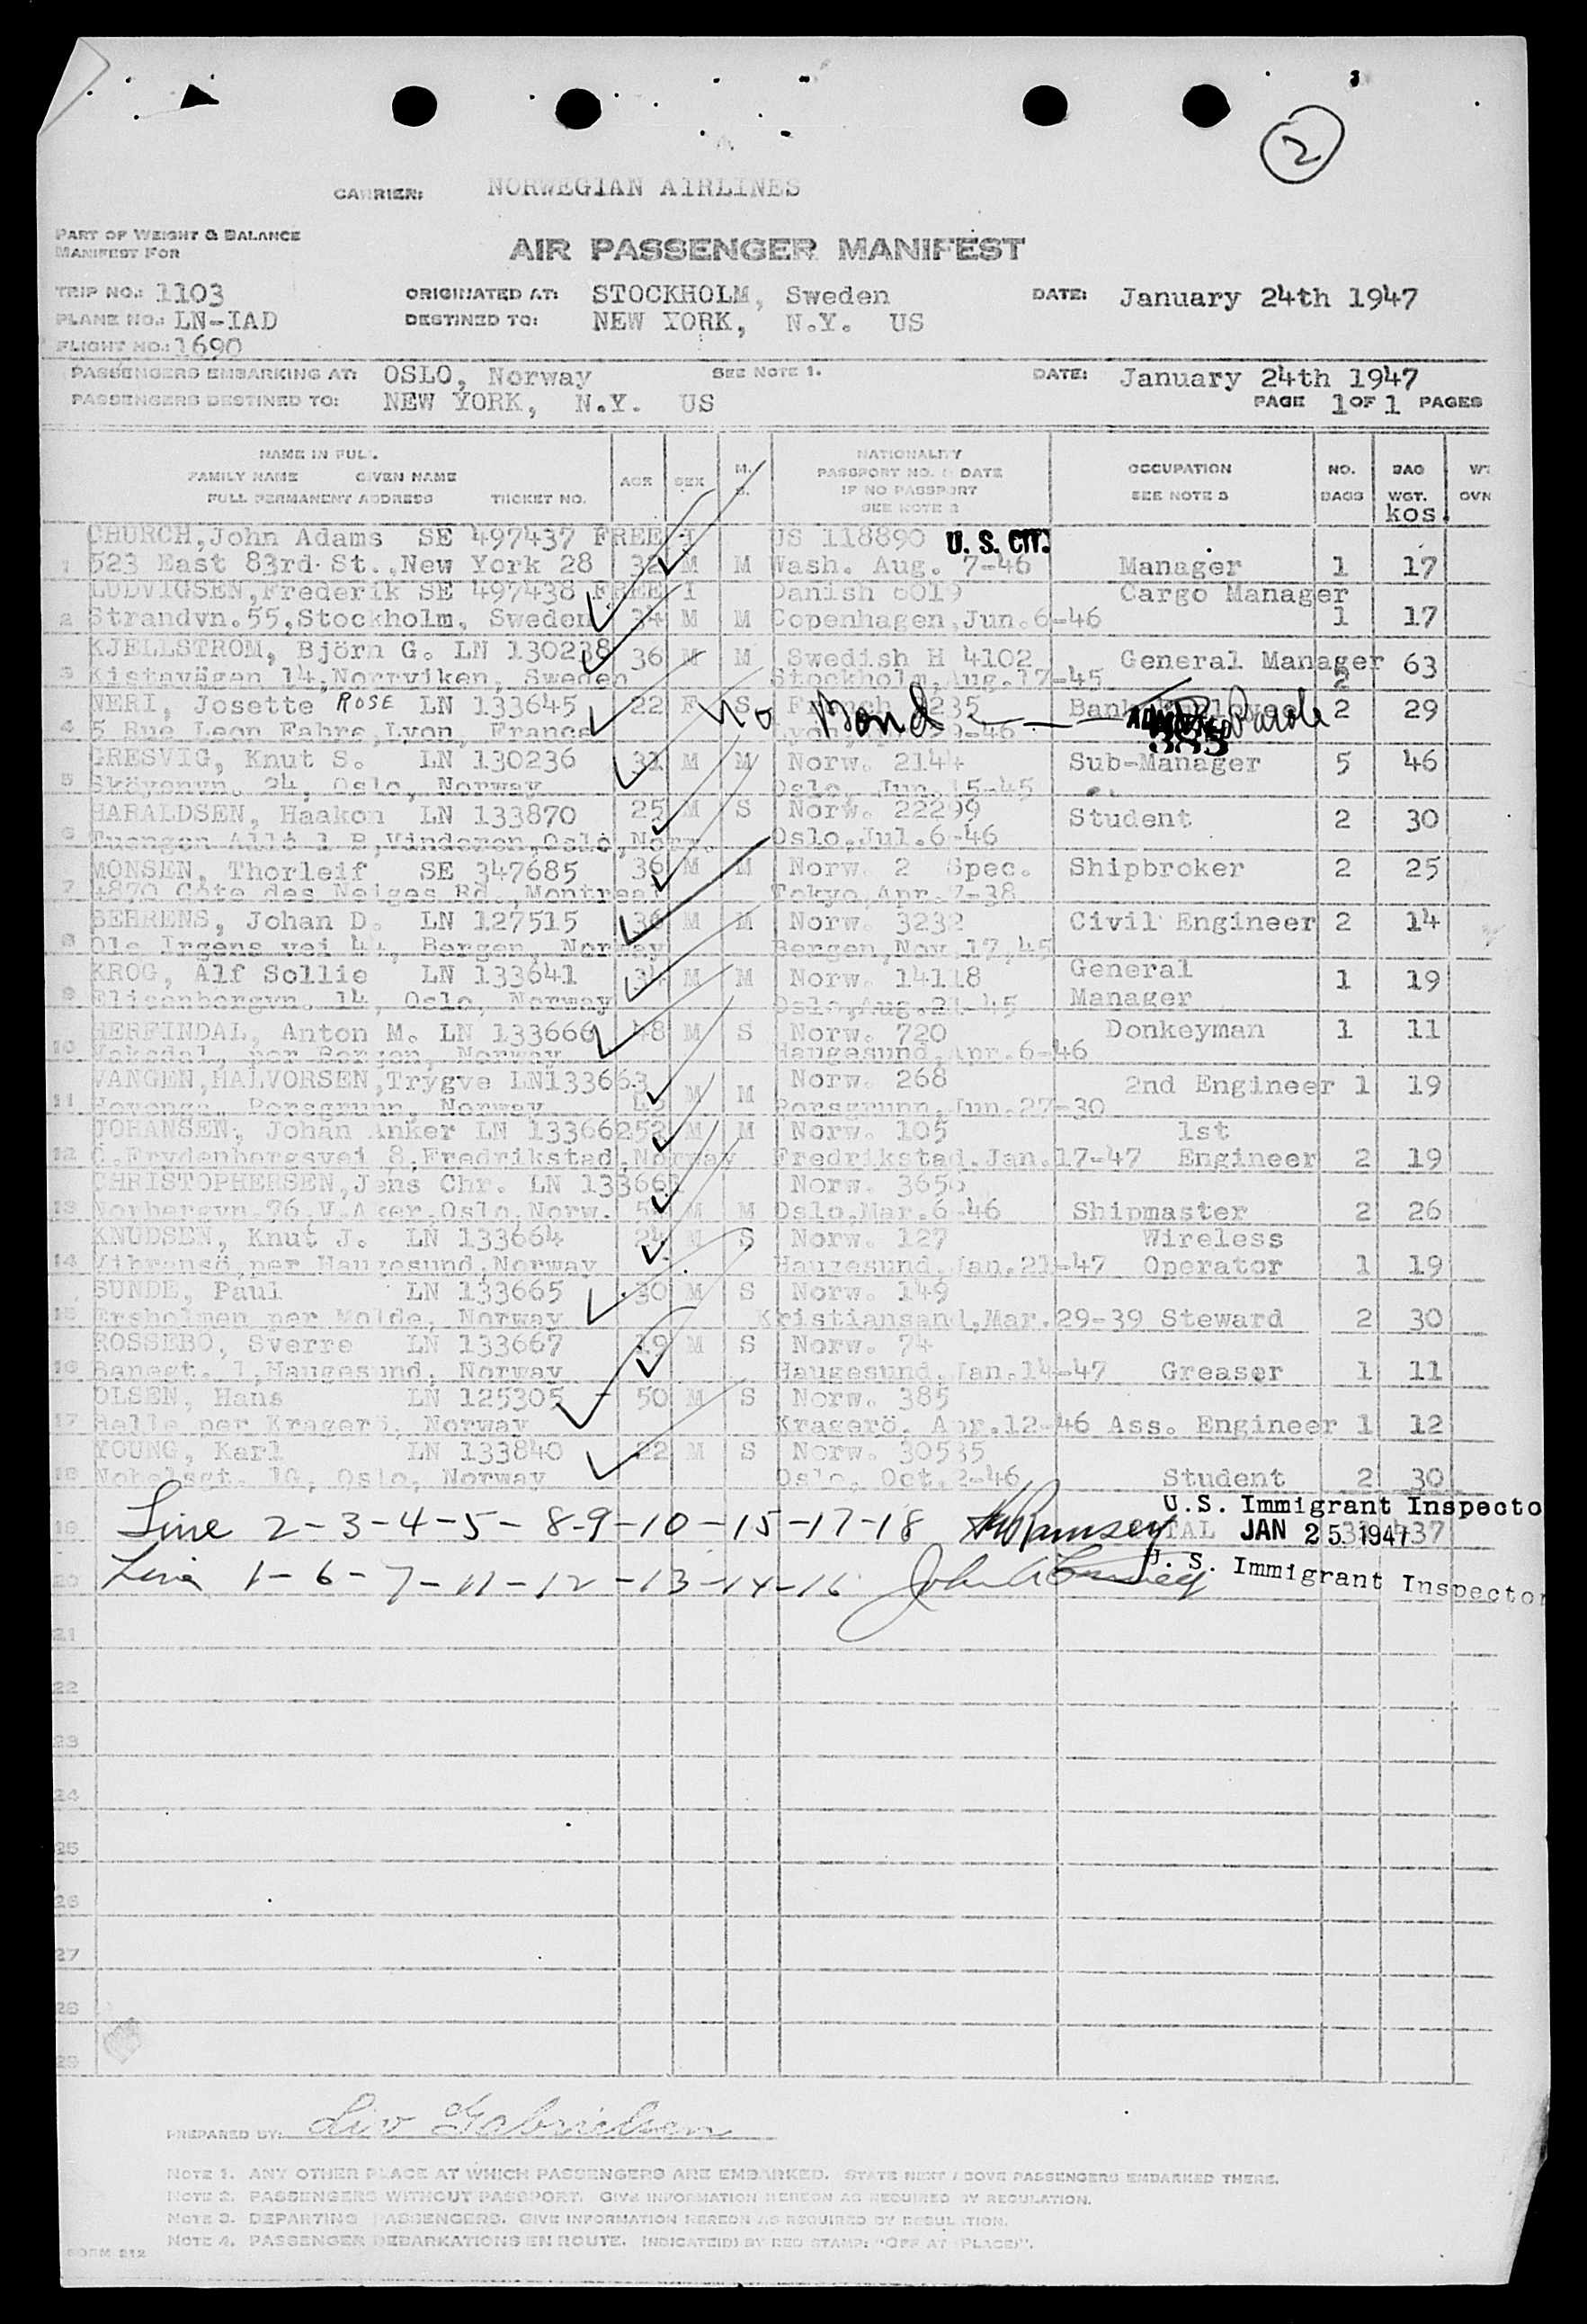 2
CARRIER: NORWEGIAN AIRLINES
PART OF WEIGHT & BALANCE
MANIFEST FOR
AIR PASSENGER MANIFEST
TRIP NO.: 1103 ORIGINATED AT: STOCKHOLM, Sweden DATE: January 24th 1947
PLANE NO.: LN-IAD DESTINED TO: NEW YORK, N.Y. US
FLIGHT NO.: 1690
PASSENGERS EMBARKING AT: OSLO, Norway SEE NOTE 1. DATE: January 24th 1947
PASSENGERS DESTINED TO: NEW YORK, N.Y. US PAGE 1 OF 1 PAGES
NAME IN FULL NATIONALITY
FAMILY NAME GIVEN NAME AGE SEX M. S. PASSPORT NO. & DATE OCCUPATION NO. BAG WT
FULL PERMANENT ADDRESS TICKET NO. IF NO PASSPORT SEE NOTE 3 BAGS WGT. OVN
SEE NOTE 2 kos.
CHURCH,John Adams SE 497437 FREE I US 118890 U. S. CIT.
1 523 East 83rd St.,New York 28 32 M M Wash. Aug. 7-46 Manager 1 17
LUDVIGSEN,Frederik SE 497438 FREE I Danish 6019 Cargo Manager
2 Strandvn.55,Stockholm, Sweden 34 M M Copenhagen,Jun.6-46 1 17
KJELLSTROM, Björn G. LN 130238 36 M M Swedish H 4102 General Manager 63
3 Kistavägen 14,Norrviken, Sweden Stockholm,Aug.17-45 2
NERI, Josette ROSE LN 133645 22 F S No Bond French 235 Bank Employee ADMITTED Parole 2 29
4 5 Rue Leon Fabre,Lyon, France Lyon, 9-46 385
GRESVIG, Knut S. LN 130236 31 M M Norw. 2144 Sub-Manager 5 46
5 Sköyenvn. 24, Oslo, Norway Oslo, Jun.15-45
HARALDSEN, Haakon LN 133870 25 M S Norw. 22299 Student 2 30
6 Tuengen Allé 1 B,Vinderen,Oslo,Norw. Oslo,Jul.6-46
MONSEN, Thorleif SE 347685 36 M M Norw. 2 Spec. Shipbroker 2 25
7 4870 Côte des Neiges Rd.,Montreal Tokyo,Apr.7-38
BEHRENS, Johan D. LN 127515 36 M M Norw. 3232 Civil Engineer 2 14
8 Ole Irgens vei 44, Bergen, Norway Bergen,Nov.17,45
KROG, Alf Sollie LN 133641 34 M M Norw. 14118 General 1 19
9 Elisenbergvn. 14, Oslo, Norway Oslo,Aug.21-45 Manager
HERFINDAL, Anton M. LN 133666 48 M S Norw. 720 Donkeyman 1 11
10 Vaksdal, per Bergen, Norway Haugesund,Apr.6-46
VANGEN,HALVORSEN,Trygve LN133663 Norw. 268 2nd Engineer 1 19
11 Hovenga, Porsgrunn, Norway 45 M M Porsgrunn,Jun.27-30
JOHANSEN, Johan Anker LN 133662 52 M M Norw. 105 1st
12 C.Frydenborgsvei 8,Fredrikstad,Norway Fredrikstad.Jan.17-47 Engineer 2 19
CHRISTOPHERSEN,Jens Chr. LN 133661 Norw. 3656
13 Norbergvn.76,V.Aker,Oslo,Norw. M M Oslo,Mar.6-46 Shipmaster 2 26
KNUDSEN, Knut J. LN 133664 24 M S Norw. 127 Wireless
14 Vibransö,per Haugesund,Norway Haugesund,Jan.21-47 Operator 1 19
SUNDE, Paul LN 133665 30 M S Norw. 149
15 Ersholmen per Molde, Norway Kristiansand,Mar.29-39 Steward 2 30
ROSSEBÖ, Sverre LN 133667 19 M S Norw. 74
16 Banegt. 1,Haugesund, Norway Haugesund,Jan.14-47 Greaser 1 11
OLSEN, Hans LN 125305 50 M S Norw. 385
17 Helle per Kragerö, Norway Kragerö, Apr.12-46 Ass. Engineer 1 12
YOUNG, Karl LN 133840 22 M S Norw. 30535
18 Nobelsgt. 10, Oslo, Norway Oslo, Oct.2-46 Student 2 30
U.S. Immigrant Inspecto
19 Line 2-3-4-5-8-9-10-15-17-18 Ramsey TOTAL JAN 25 1947 33 437
U. S. Immigrant Inspector
20 Line 1-6-7-11-12-13-14-16
21
22
23
24
25
26
27
28
29
PREPARED BY: Liv Gabrielsen
NOTE 1. ANY OTHER PLACE AT WHICH PASSENGERS ARE EMBARKED. STATE NEXT ABOVE PASSENGERS EMBARKED THERE.
NOTE 2. PASSENGERS WITHOUT PASSPORT. GIVE INFORMATION HEREON AS REQUIRED BY REGULATION.
NOTE 3. DEPARTING PASSENGERS. GIVE INFORMATION HEREON AS REQUIRED BY REGULATION.
NOTE 4. PASSENGER DEBARKATIONS EN ROUTE. INDICATE(D) BY RED STAMP: "OFF AT (PLACE)".
FORM 212